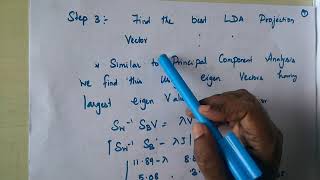 Step 3:- Find the best LDA Projection
Vector
* Similar to Principal Component Analysis
We find this eigen Vectors having
largest eigen Val
Sw⁻¹ SBV = λV
| Sw⁻¹ SB - λI
| 11.89-λ 8.
5.08